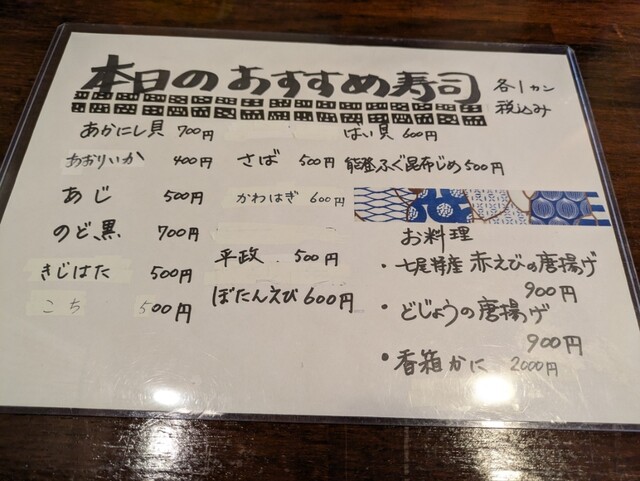 本日のおすすめ寿司
各1カン
税込み
あかにし貝 700円
あおりいか 400円
あじ 500円
のど黒 700円
きじはた 500円
こち 500円
さば 500円
かわはぎ 600円
平政 500円
ぼたんえび 600円
ばい貝 600円
能登ふぐ昆布じめ 500円
お料理
・七尾特産 赤えびの唐揚げ
900円
・どじょうの唐揚げ
900円
・香箱かに 2000円